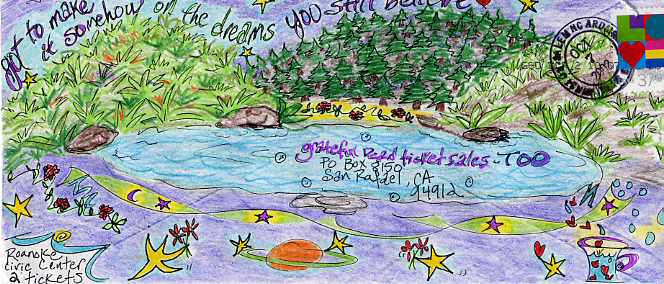 got to make it somehow on the dreams you still believe
grateful Dead ticket sales - TOO
PO Box
San Rafael, CA
94912
Roanoke
Civic Center
2 tickets
37